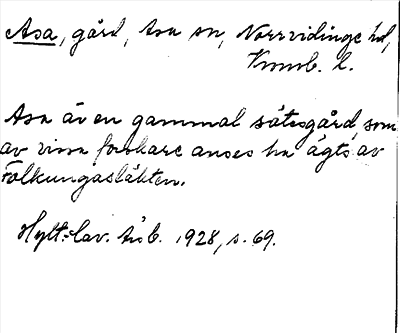 Asa, gård, Asa sn, Norrvidinge hd,
Kronb. l.
Asa är en gammal sätesgård, som
av vissa forskare anses ha ägts av
Folkungasläkten.
Hylt-Cav. Årsb. 1928, s. 69.